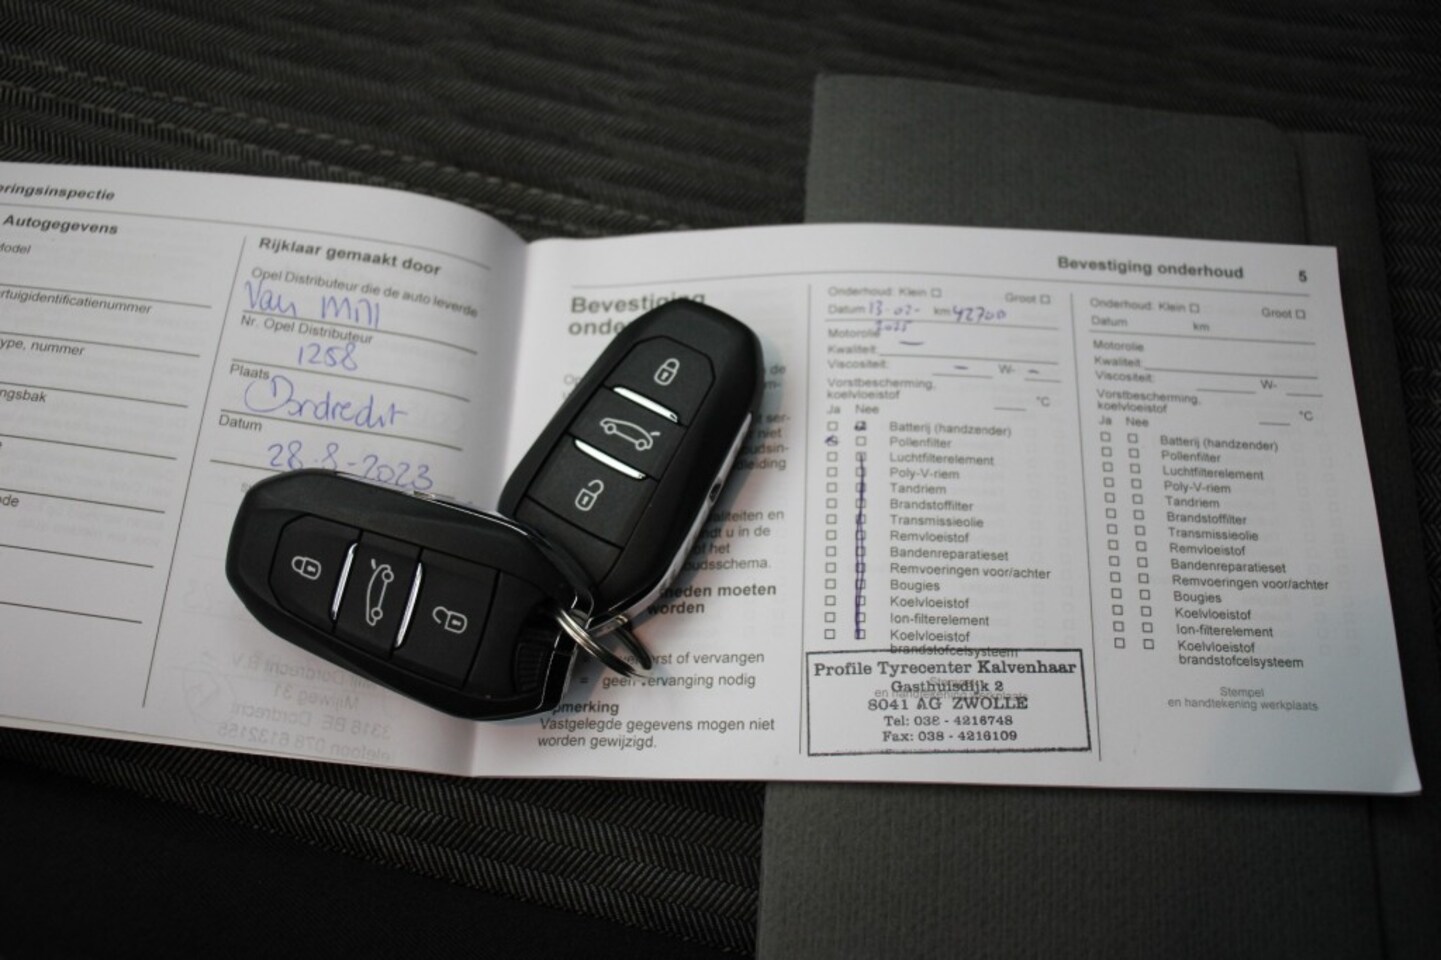 eringsinspectie
Autogegevens
Model
rtuigidentificatienummer
ype, nummer
ngsbak
ode
Rijklaar gemaakt door
Opel Distributeur die de auto leverde
Van Mill
Nr. Opel Distributeur
1258
Plaats
Dordrecht
Datum
28-8-2023
Bevestiging
onde
aliteiten en
dt u in de
of het
oudsschema.
heden moeten
worden
verst of vervangen
= geen vervanging nodig
pmerking
Vastgelegde gegevens mogen niet
worden gewijzigd.
Bevestiging onderhoud 5
Onderhoud: Klein □ Groot □
Datum 13-02- km 42700
2025
Motorolie
Kwaliteit
Viscositeit: W-
Vorstbescherming,
koelvloeistof °C
Ja Nee
Batterij (handzender)
Pollenfilter
Luchtfilterelement
Poly-V-riem
Tandriem
Brandstoffilter
Transmissieolie
Remvloeistof
Bandenreparatieset
Remvoeringen voor/achter
Bougies
Koelvloeistof
Ion-filterelement
Koelvloeistof
brandstofcelsysteem
Stempel
en handtekening werkplaats
Profile Tyrecenter Kalvenhaar
Gasthuisdijk 2
8041 AG ZWOLLE
Tel: 038 - 4216748
Fax: 038 - 4216109
Onderhoud: Klein □ Groot □
Datum km
Motorolie
Kwaliteit
Viscositeit: W-
Vorstbescherming,
koelvloeistof °C
Ja Nee
Batterij (handzender)
Pollenfilter
Luchtfilterelement
Poly-V-riem
Tandriem
Brandstoffilter
Transmissieolie
Remvloeistof
Bandenreparatieset
Remvoeringen voor/achter
Bougies
Koelvloeistof
Ion-filterelement
Koelvloeistof
brandstofcelsysteem
Stempel
en handtekening werkplaats